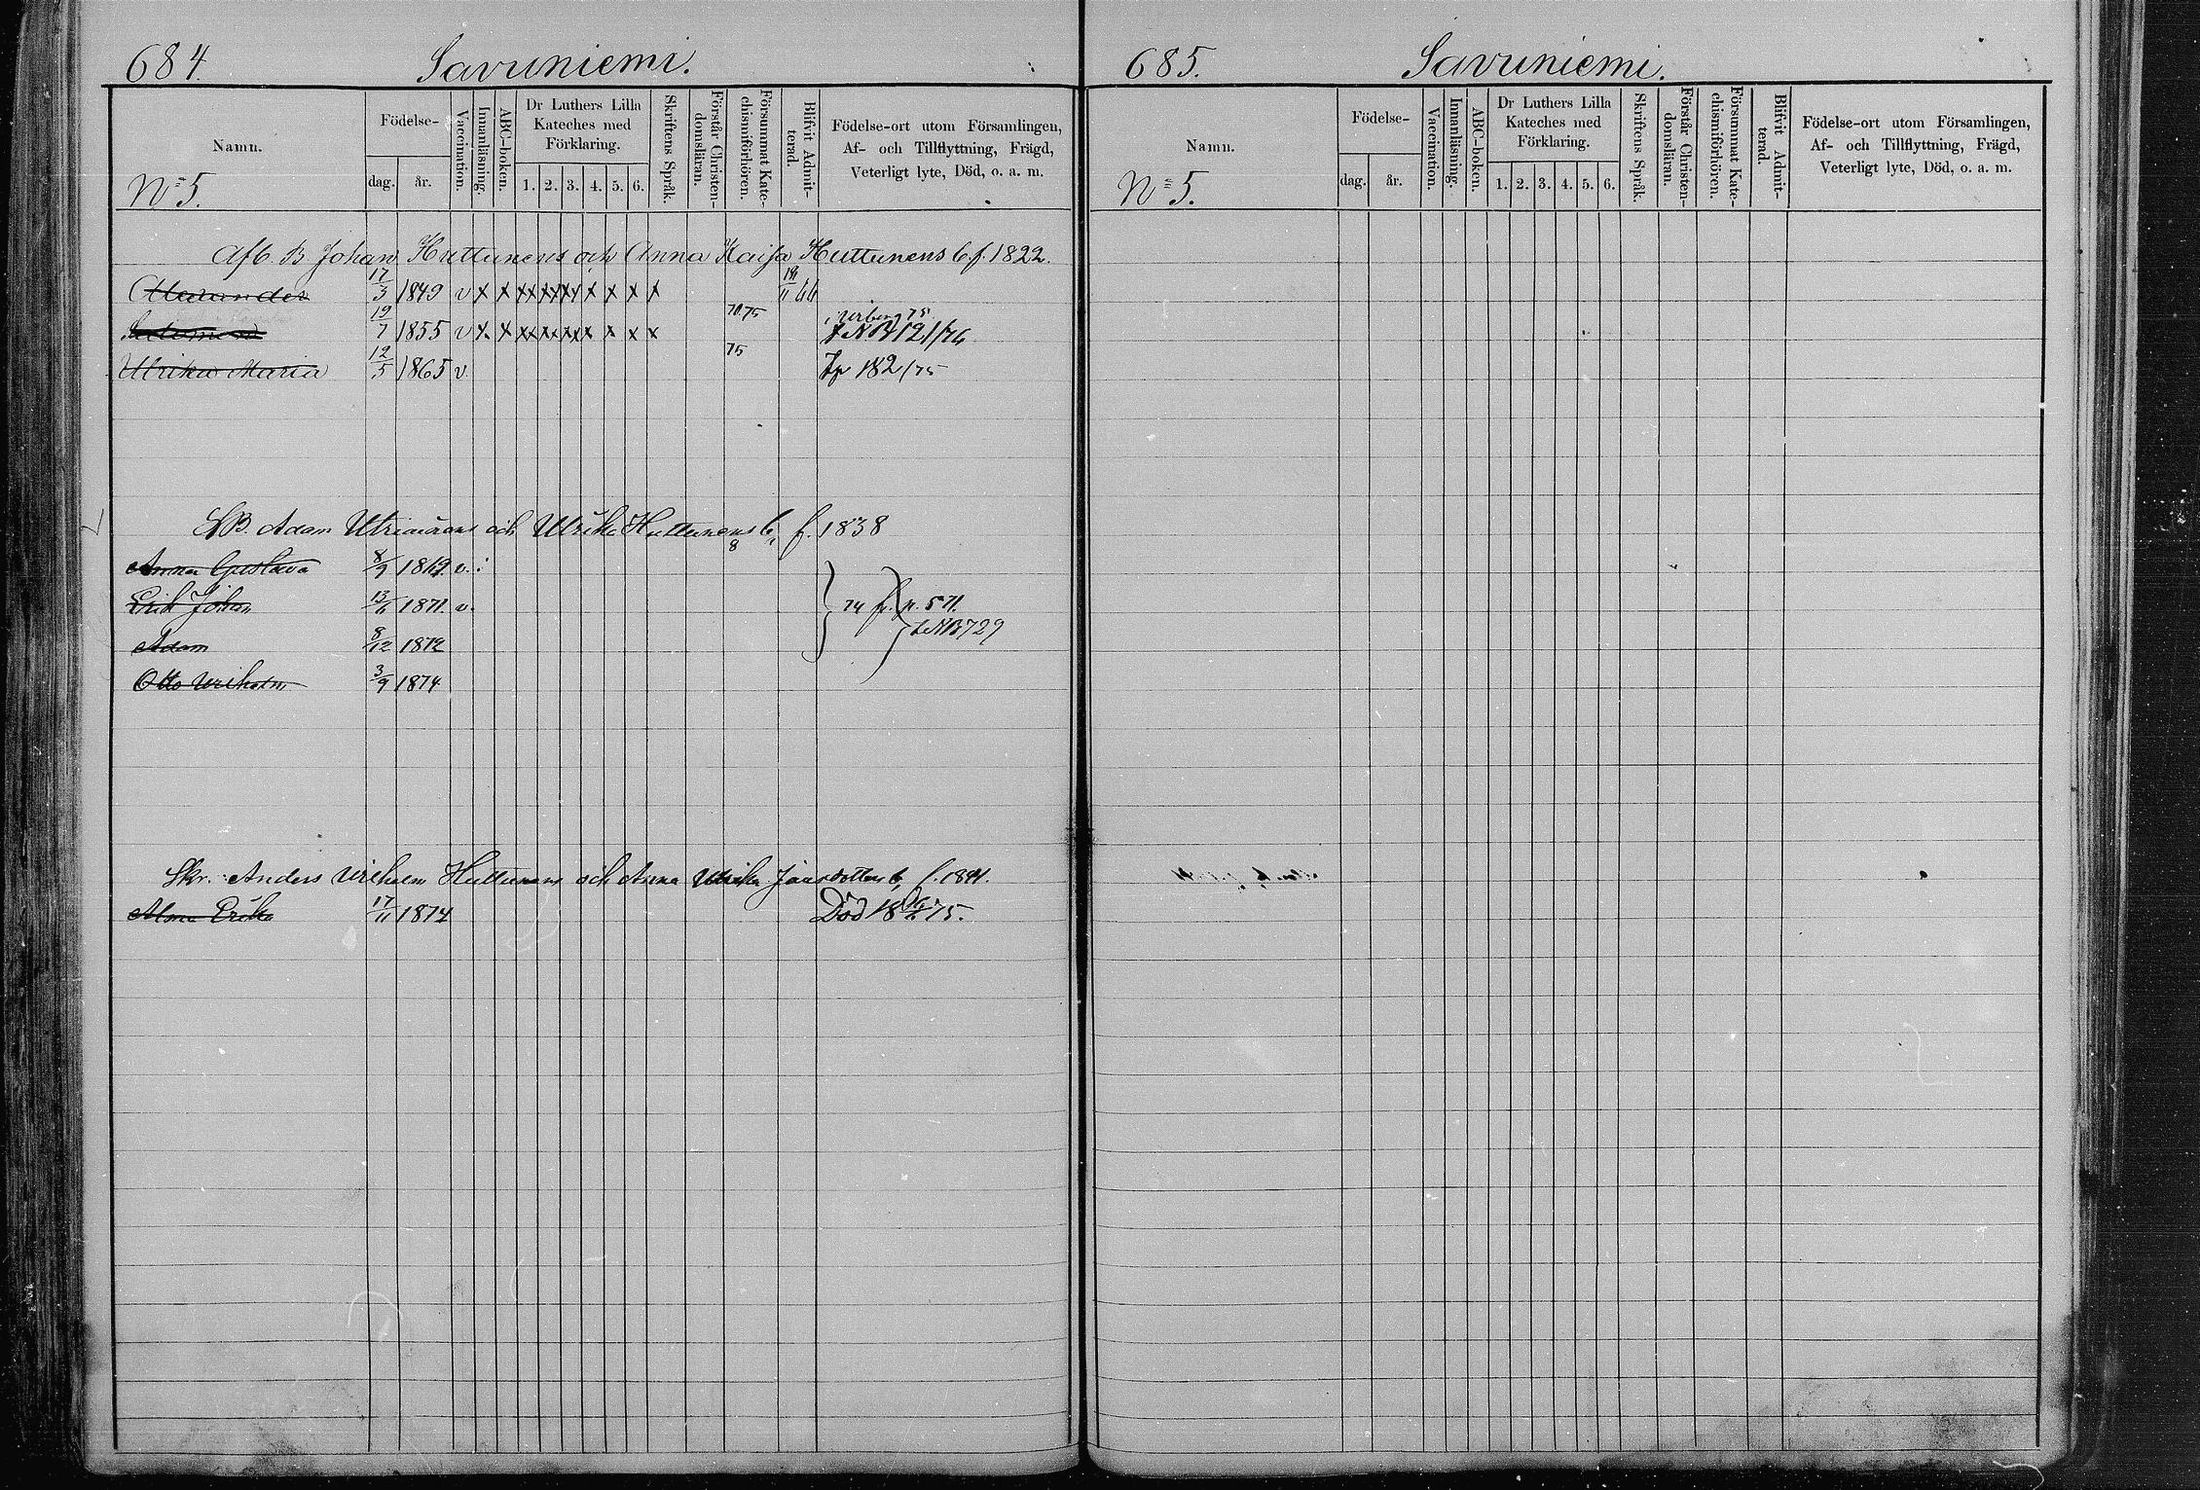 684.
Savuniemi.
Namn.
Födelse-
dag.
år.
Vaccination.
Innanläsning.
ABC-boken.
Dr Luthers Lilla
Kateches med
Förklaring.
1. 2. 3. 4. 5. 6.
Skriftens Språk.
Förstår Christen-
domsläran.
Försummat Kate-
chismiförhören.
Blifvit Admit-
terad.
Födelse-ort utom Församlingen,
Af- och Tillflyttning, Frägd,
Veterligt lyte, Död, o. a. m.
No 5.
Afb. B Johan Huttunens och Anna Kaisa Huttunens b. f. 1822.
Alexander 17/3 1849 v x x xx xx xx x x x x
19/7 1855 v x x xx xx xx x x x x 75 75
Ulrika Maria 12/5 1865 v. 75 182/75
Adam och Ulrika Huttunens b. f. 1838
Anna Gustava 8/9 1869 v.
Erik Johan 13/11 1871 v. 74 p. 571.
729
Adam 8/12 1872
Otto 3/9 1874
Skr. Anders Huttunens och Anna Ulrika b. f. 1841.
17/11 1874 Död 75.
685.
Savuniemi.
Namn.
Födelse-
dag.
år.
Vaccination.
Innanläsning.
ABC-boken.
Dr Luthers Lilla
Kateches med
Förklaring.
1. 2. 3. 4. 5. 6.
Skriftens Språk.
Förstår Christen-
domsläran.
Försummat Kate-
chismiförhören.
Blifvit Admit-
terad.
Födelse-ort utom Församlingen,
Af- och Tillflyttning, Frägd,
Veterligt lyte, Död, o. a. m.
No 5.